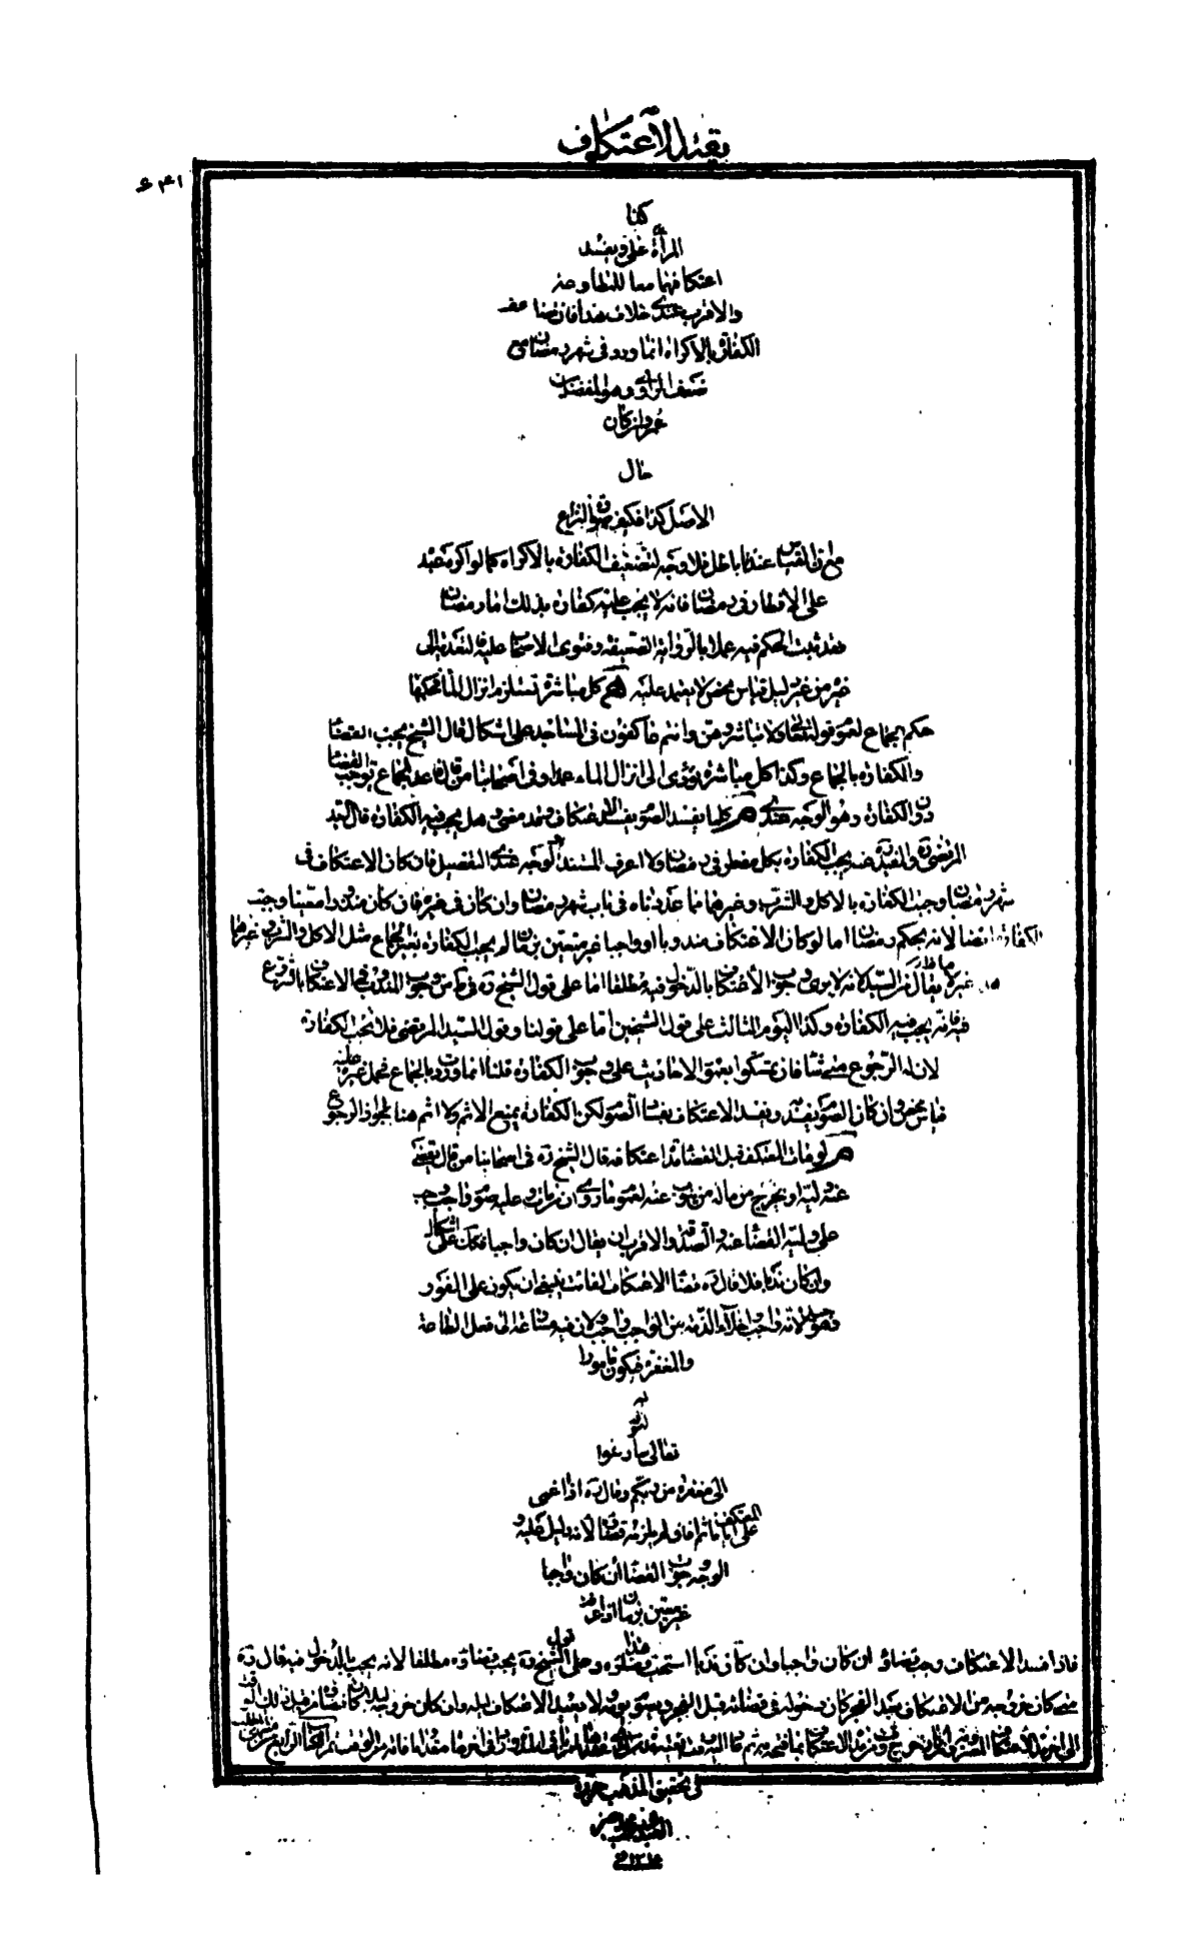 بقية الاعتكاف
۶۴۱
كفا
المرأة على ويفسد
اعتكافهما معا للمطاوعة
والاقرب عندي خلاف هذا فان تضاعف
الكفارة بالاكراه انما ورد فى شهر رمضان مع
ضعف الراوى وهو المفضل بن
عمر واذ كان
حال
الاصل كذا فكيف صورة النزاع
مع ان القياس عندنا باطل فلا وجه لتضعيف الكفارة بالاكراه كما لو اكره معبد
على الافطار فى رمضان فانه لا يجب عليه كفارة بذلك اما رمضان
فقد ثبت الحكم فيه عملا بالرواية الضعيفة وفتوى الاصحاب عليه فالتعدية الى
غيره من غير دليل قياس محض لا يعتمد عليه كل مباشرة تستلزم انزال الماء فحكمها
حكم الجماع لعموم قوله تعالى ولا تباشروهن وانتم عاكفون فى المساجد على اشكال قال الشيخ يجب القضاء
والكفارة بالجماع وكذا كل مباشرة يؤدى الى انزال الماء عمدا وفى اصحابنا من قال ما عدا الجماع يوجب القضاء
دون الكفارة وهو الوجه عندي كلما يفسد الصوم يفسد الاعتكاف وقد مضى وهل يجب فيه الكفارة قال السيد
المرتضى ره والمفيد ره عنه يجب الكفارة بكل مفطر فى رمضان ولا اعرف المستند والوجه عندى التفصيل فان كان الاعتكاف فى
شهر رمضان وجبت الكفارة بالاكل والشرب وغيرهما مما عددناه فى باب شهر رمضان وان كان فى غيره فان كان منذورا معينا وجبت
الكفارة ايضا لانه بحكم رمضان اما لو كان الاعتكاف مندوبا او واجبا غير متعين بزمان لم يجب الكفارة بغير الجماع مثل الاكل والشرب وغيرهما
غيره لا يقال السيد لانه لا يرى وجوب الاعتكاف بالدخول فيه مطلقا اما على قول الشيخ ره فى وجوب المندوب فى الاعتكاف بالشروع
فيه فانه يجب فيه الكفارة وكذا اليوم الثالث على قول الشيخين اما على قولنا وقول السيد المرتضى فلا يجب الكفارة
لان له الرجوع متى شاء فان تمسكوا بعموم الاحاديث على وجوب الكفارة قلنا انما وردت بالجماع فحمل غيره عليه
قياس محض وان كان الصوم يفسد ويفسد الاعتكاف بفساد الصوم لكن الكفارة يمنع الاثم ولا اثم هنا لجواز الرجوع
لو مات المعتكف قبل انقضاء مدة اعتكافه قال الشيخ ره فى اصحابنا من قال يقضى
عنه وليه او يخرج من ماله من ينوب عنه لعموم ما روى ان من مات وعليه صوم واجب وجب
على وليه القضاء عنه والصدقة والاقرب ان يقال ان كان واجبا فكان على اشكال
وان كان ندبا فلا قال ره قضاء الاعتكاف الفائت ينبغى ان يكون على الفور
وهو جيد لانه واجب واخلاء الذمة من الواجب واجب ولان فيه مسارعة الى فعل الطاعة
والمغفرة فيكون مأمورا
به
لقوله
تعالى سارعوا
الى مغفرة من ربكم وقال ره اذا اغمى
على المعتكف اياما ثم افاق لم يلزمه قضاء لانه لا دليل عليه و
الوجه وجوب القضاء ان كان واجبا
غير متعين بزمان اذا
فاذا فسد الاعتكاف وجب قضاؤه ان كان واجبا وان كان ندبا استحب قضاؤه وعلى قول الشيخ ره يجب قضاؤه مطلقا لانه يجب بالدخول فيه قال ره
متى كان خروجه من الاعتكاف بعد الفجر كان دخوله فى قضائه قبل الفجر ويصوم يومه ولا يعيد الاعتكاف ليله وان كان خروجه ليلا كان قضاؤه من مثل ذلك الوقت
الى اخر مدة الاعتكاف
فى تحقيق المذهب